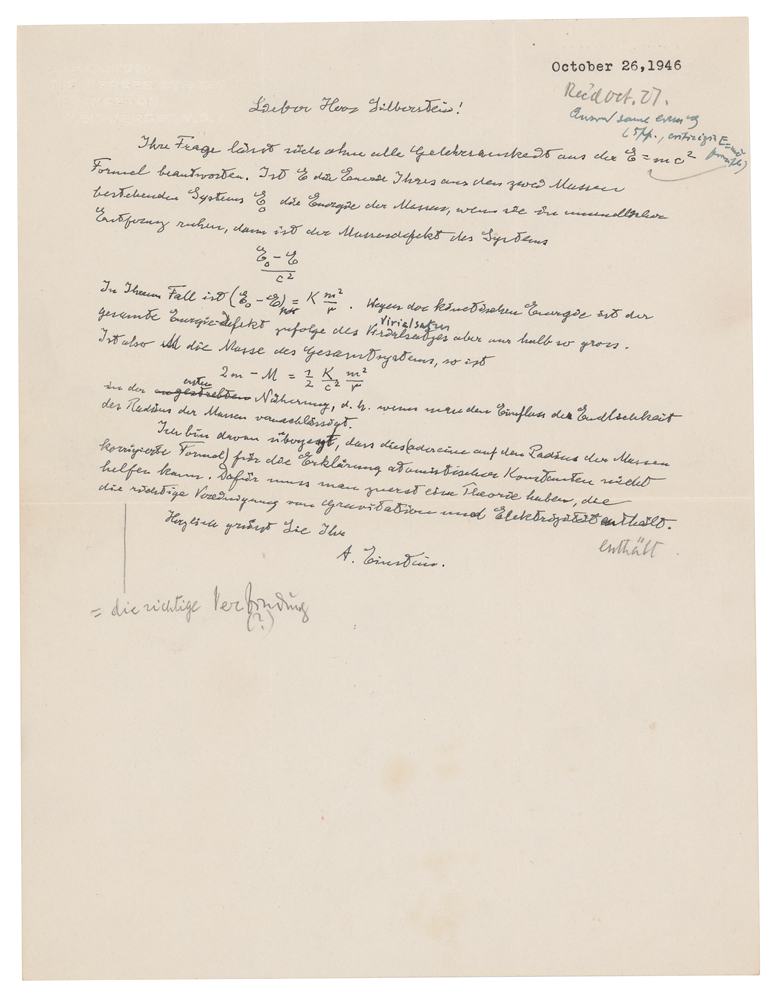 October 26, 1946
Rec'd Oct. 27.
Answ'd same evening
(5pp., criticizing E=mc²
formula)
Lieber Herr Silberstein!
Ihre Frage lässt sich ohne alle Gelehrsamkeit aus der E = mc²
Formel beantworten. Ist E die Energie Ihres aus den zwei Massen
bestehenden Systems E₀ die Energie der Massen, wenn sie in unendlicher
Entfernung ruhen, dann ist der Massendefekt des Systems
E₀ - E
c²
In Ihrem Fall ist (E₀ - E) = K m²/r . Wegen der kinetischen Energie ist der
gesamte Energiedefekt zufolge des Virialsatzes aber nur halb so gross.
Virialsatzes
Ist also M die Masse des Gesamtsystems, so ist
2m - M = 1/2 K/c² m²/r
in der ersten Näherung, d. h. wenn man den Einfluss der Endlichkeit
des Radius der Massen vernachlässigt.
Ich bin davon überzeugt, dass dies (oder eine auf den Radius der Massen
korrigierte Formel) für die Erklärung atomistischer Konstanten nicht
helfen kann. Dafür muss man zuerst eine Theorie haben, die
die richtige Vereinigung von Gravitation und Elektrizität enthält.
enthält
Herzlich grüsst Sie Ihr
A. Einstein.
= die richtige Verbindung
(?)